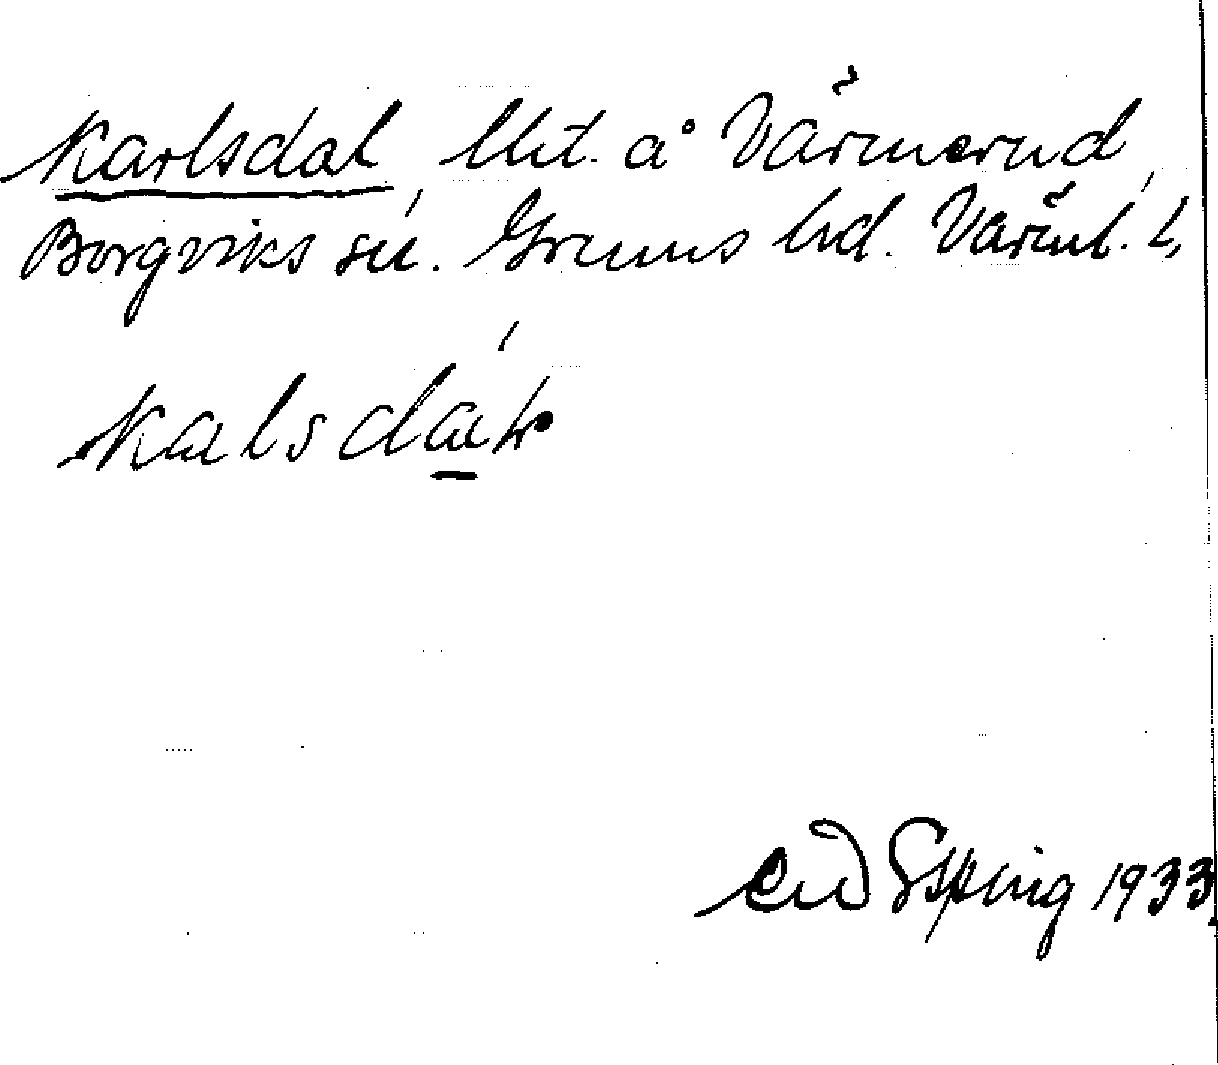 Karlsdal, lht. å Värmerud,
Borgviks sn. Grums hd. Värml. l,
kalsda
Espling 1933.